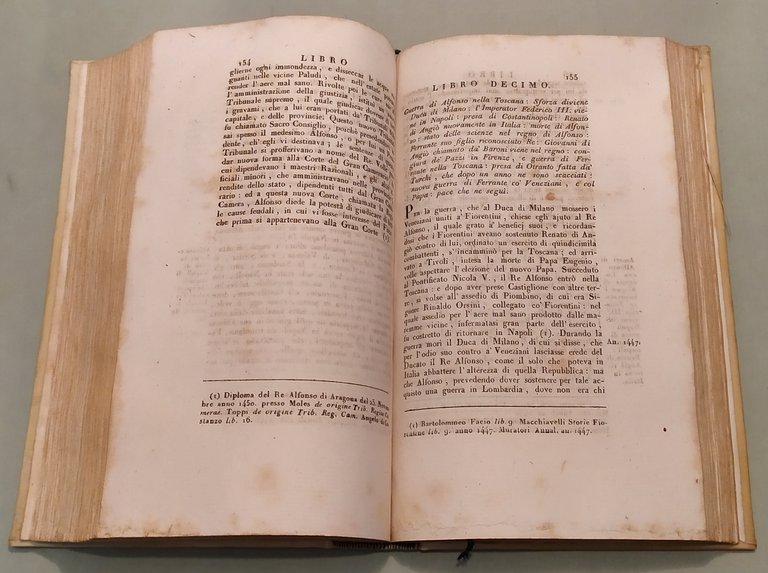 154 LIBRO
glierne ogni immondezza, e disseccar le acque
gnanti nelle vicine Paludi, che nell'estate
render l'aere mal sano. Rivolte poi le cure
l'amministrazione della giustizia, istituì un
Tribunale supremo, il quale giudicar dovesse
i gravami, che a lui eran portati da' Tribunali
capitale, e delle provincie: Questo nuovo Tribunale
fu chiamato Sacro Consiglio, poichè presedendovi
sai spesso il medesimo Alfonso, o per lui un
ch', egli vi destinava; le sentenze di
Tribunale si profferivano a nome del Re. Volle
dar nuova forma alla Corte del Gran Camerario,
cui dipendevano i maestri Razionali, e gli altri
ficiali minori, che amministravano nelle provincie
rendite dello stato, dipendenti tutti dal Gran Came-
rario: ed a questa nuova Corte, chiamata la Regia
Camera, Alfonso diede la potestà di giudicare di
le cause feudali, in cui vi fosse interesse del Fisco,
che prima si appartenevano alla Gran Corte (1).
(1) Diploma del Re Alfonso di Aragona del 23. Novem-
bre anno 1450. presso Moles de origine Trib. Regiae Ca-
merae. Toppi de origine Trib. Reg. Cam. Angelo di Co-
stanzo lib. 16.
155
LIBRO DECIMO.
Guerra di Alfonso nella Toscana: Sforza diviene
Duca di Milano: l'Imperator Federico III. vie-
ne in Napoli: presa di Costantinopoli: Renato
di Angiò nuovamente in Italia: morte di Alfon-
so: stato delle scienze nel regno di Alfonso:
Ferrante suo figlio riconosciuto Re: Giovanni di
Angiò chiamato da' Baroni viene nel regno: con-
giura de' Pazzi in Firenze, e guerra di Fer-
rante nella Toscana: presa di Otranto fatta da'
Turchi, che dopo un anno ne sono scacciati:
nuova guerra di Ferrante co' Veneziani, e col
Papa: pace che ne seguì.
Per la guerra, che al Duca di Milano mossero i
Veneziani uniti a' Fiorentini, chiese egli ajuto al Re
Alfonso, il quale grato a' beneficj suoi, e ricordan-
dosi che i Fiorentini aveano sostenuto Renato di An-
giò contro di lui, ordinato un esercito di quindicimila
combattenti, s'incamminò per la Toscana; ed arri-
vato a Tivoli, intesa la morte di Papa Eugenio,
volle aspettare l'elezione del nuovo Papa. Succeduto
al Pontificato Nicola V., il Re Alfonso entrò nella
Toscana: e dopo aver prese Castiglione con altre ter-
re, si volse all'assedio di Piombino, di cui era Si-
gnore Rinaldo Orsini, collegato co' Fiorentini: nel
quale assedio per l'aere mal sano prodotto dalle ma-
remme vicine, infermatasi gran parte dell'esercito,
fu costretto di ritornare in Napoli (1). Durando la
guerra morì il Duca di Milano, di cui si disse, che An. 1447.
per l'odio suo contro a' Veneziani lasciasse erede del
Ducato il Re Alfonso, come il solo che poteva in
Italia abbattere l'alterezza di quella Repubblica: ma
che Alfonso, prevedendo dover sostenere per tale ac-
quisto una guerra in Lombardia, dove non era chi
(1) Bartolommeo Facio lib. 9. Macchiavelli Storie Fio-
rentine lib. 9. anno 1447. Muratori Annal. an. 1447.